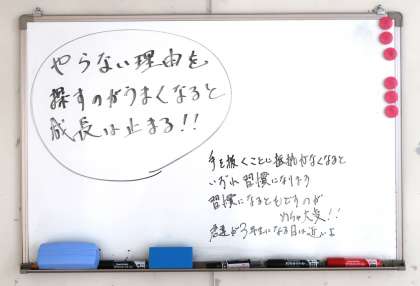 やらない理由を
探すのがうまくなると
成長は止まる!!
手を抜くことに抵抗がなくなると
いずれ習慣になります
習慣になるともどすのが
めちゃ大変!!
君達が3年生になる日は近いよ